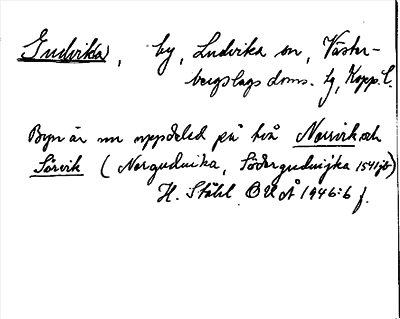 Gudvika, by, Ludvika sn, Väster-
bergslags doms. hg, Kopp. l.
Byn är nu uppdelad på två Norrvik och
Sörvik (Norgudvika, Södergudvijka 1541 jb)
H. Ståhl OUÅ 1946: 6 f.